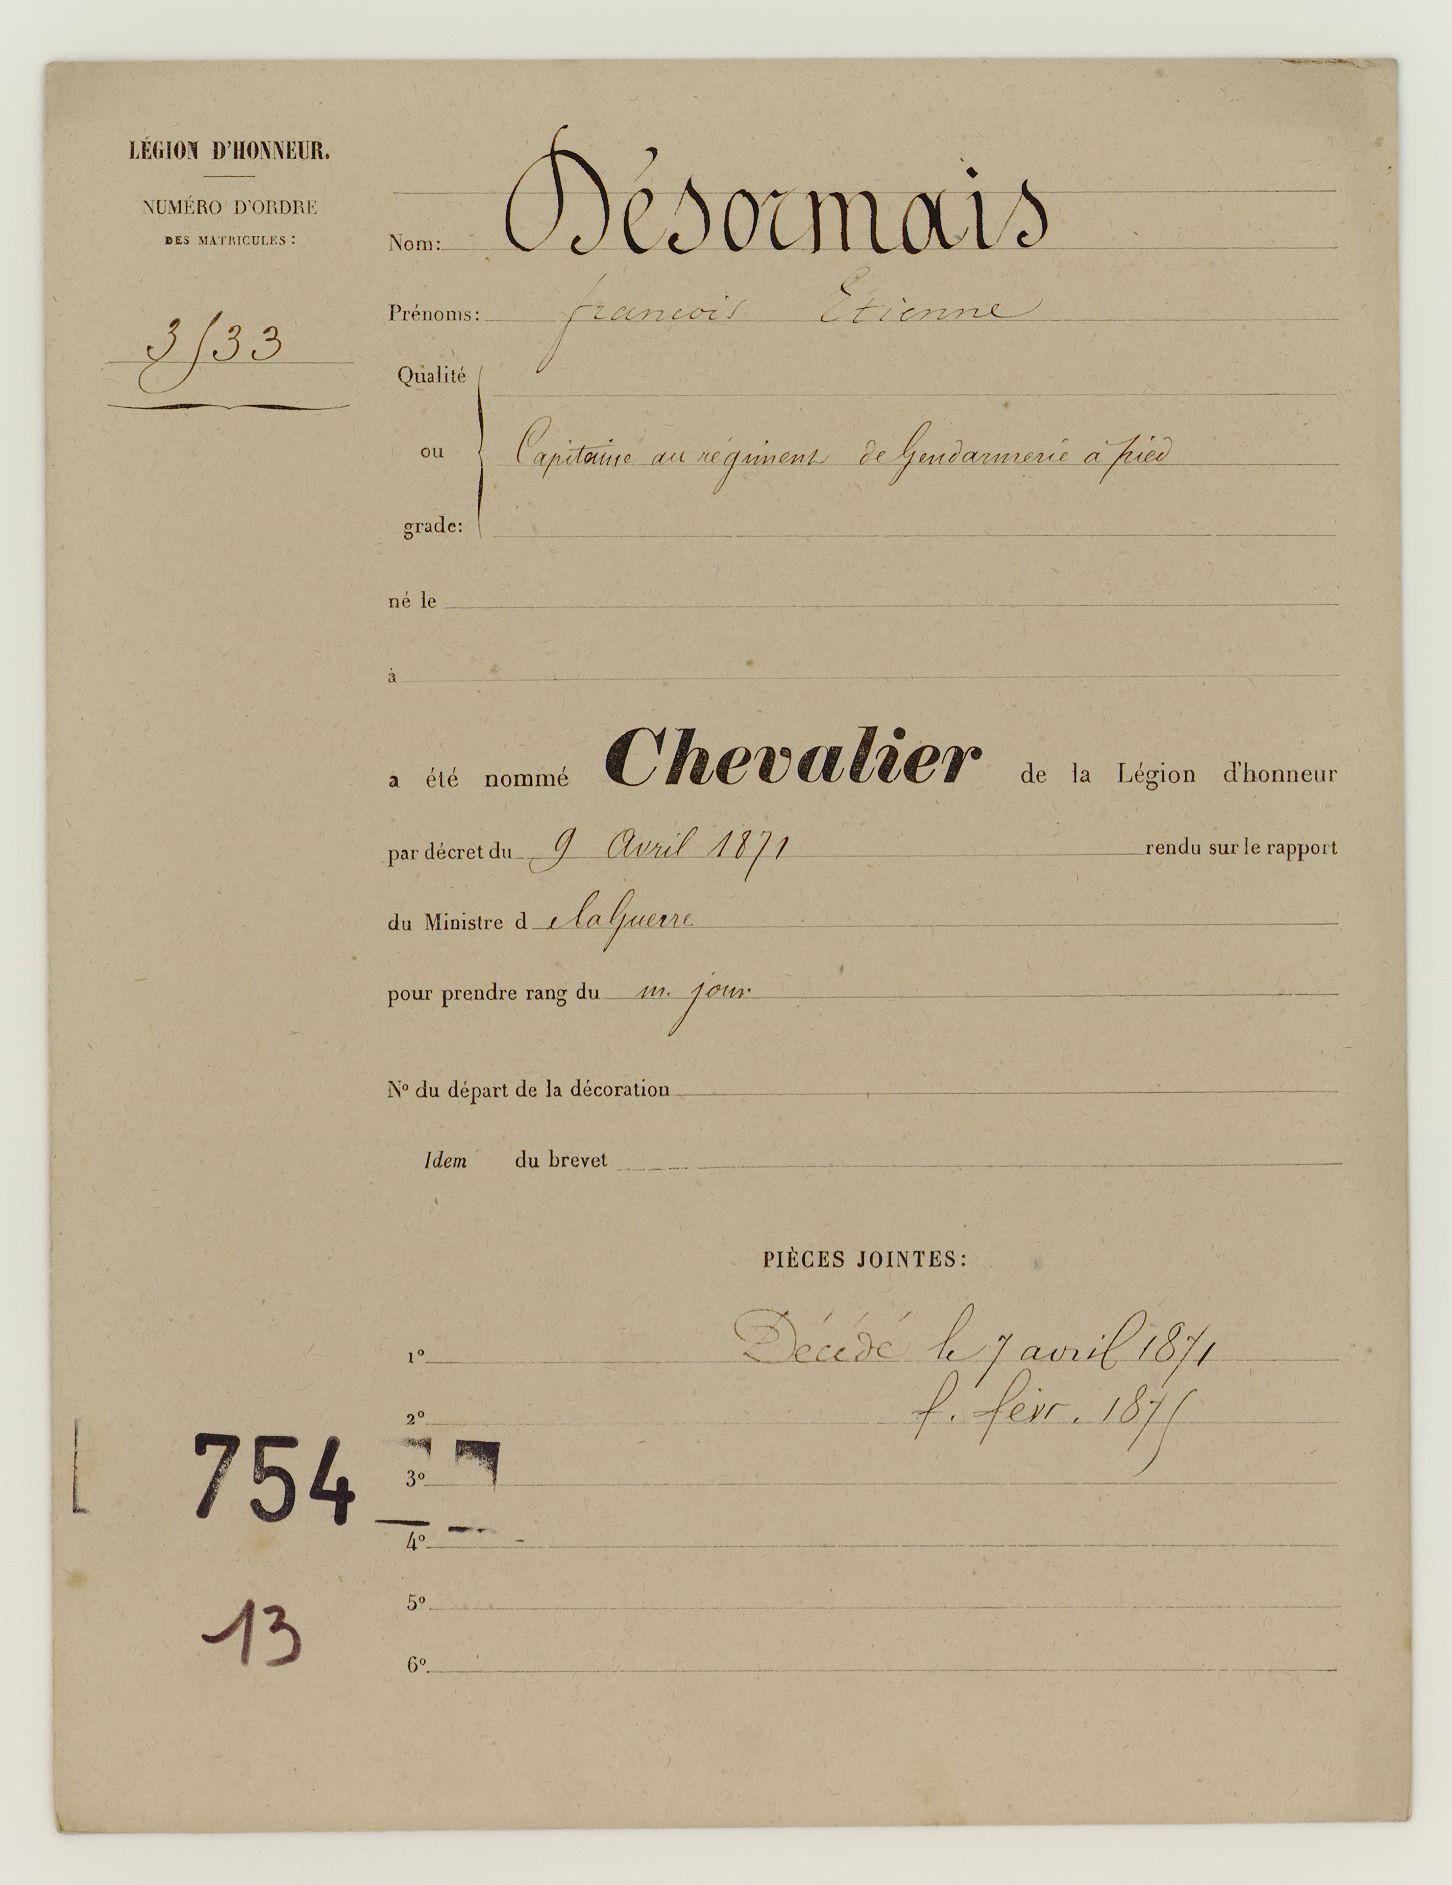 LÉGION D'HONNEUR.
NUMÉRO D'ORDRE
DES MATRICULES:
3533
Nom: Désormais
Prénoms: françois Etienne
Qualité
ou
grade:
Capitaine au régiment de Gendarmerie à pied
né le
à
a été nommé Chevalier de la Légion d'honneur
par décret du 9 Avril 1871 rendu sur le rapport
du Ministre d e la Guerre
pour prendre rang du m. jour
Nº du départ de la décoration
Idem du brevet
PIÈCES JOINTES:
1º Décédé le 7 avril 1871
2º f. févr. 1875
3º
754
4º
5º
13
6º